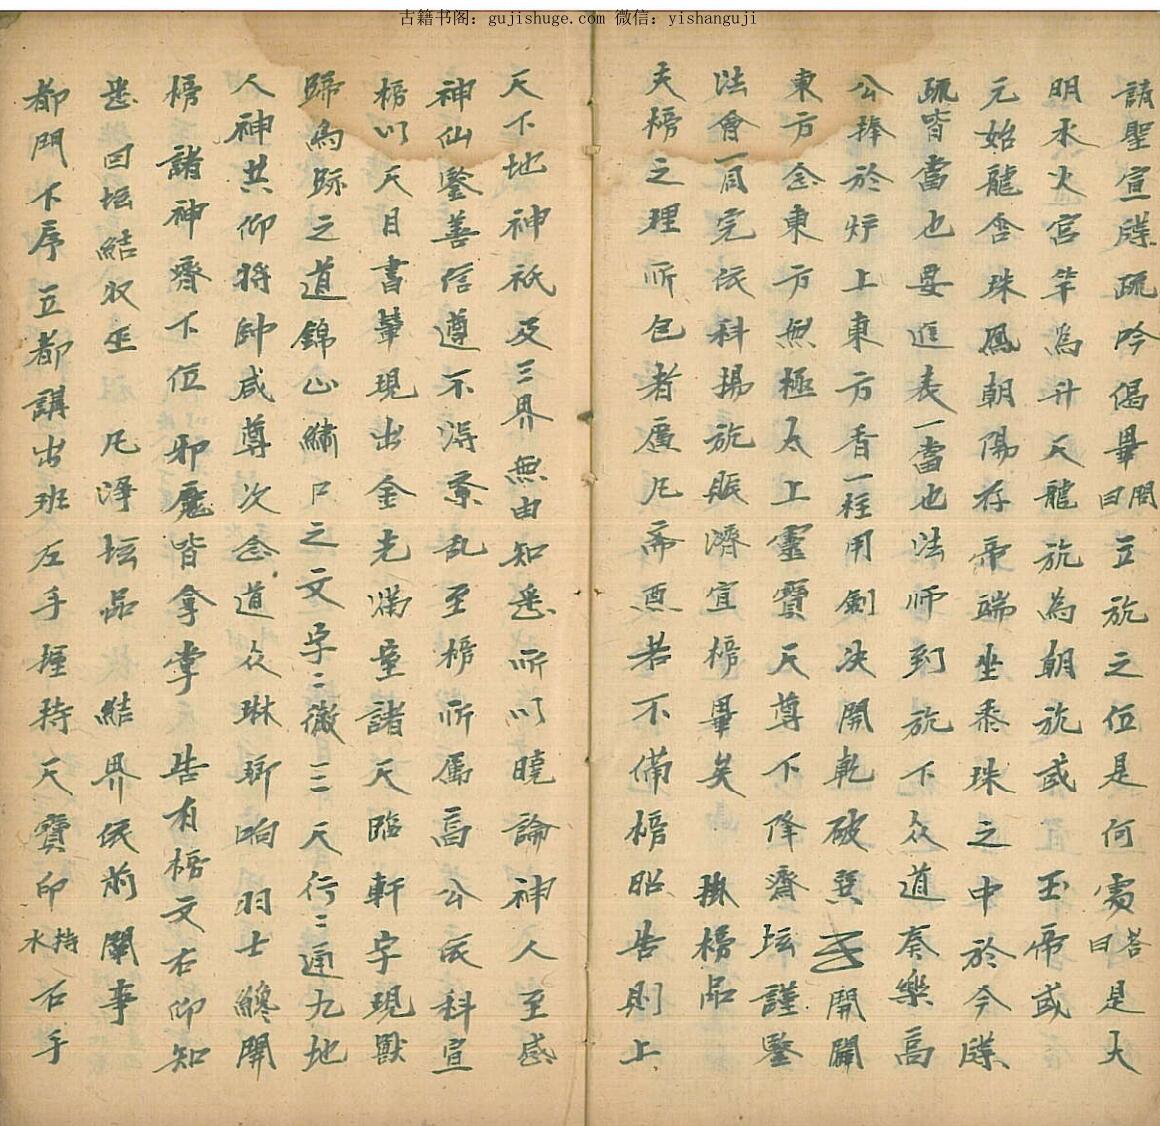 古籍书阁：gujishuge.com 微信：yishanguji
請聖宣牒疏吟偈畢問曰立旂之位是何處答曰是大
明水火宮竿為升天龍旂為朝旂或玉帝或
元始龍含珠鳳朝陽存帝端坐黍珠之中於今牒
疏皆當也毋進表一當也法師到旂下众道奏樂高
公捧於炉上東方香一柱用劍决開乾破巽開闢
東方念東方無極太上靈寶天尊下降齋坛謹鑒
法會一周完依科揚旂賑濟宜榜畢矣 掛榜品
天榜之理所包者廣凡斋酉若不備榜昭告則上
天下地神祇及三界無由知悉所以曉諭神人至感
神仙鑒善信遵不淂紊乱至榜所属高公依科宣
榜以天目書肇現出金光滿童諸天臨軒字現獸
歸為跡之道錦山繡口之文字〻徹三天行〻通九地
人神共仰将帥咸尊次念道众琳瑯响羽士纔開
榜諸神齊下位邪魔皆拿掌告有榜文右仰知
悉回坛結収巫 凡淨坛品 結界依前闡事
都門下序立都講出班左手捶持天寶印持水右手